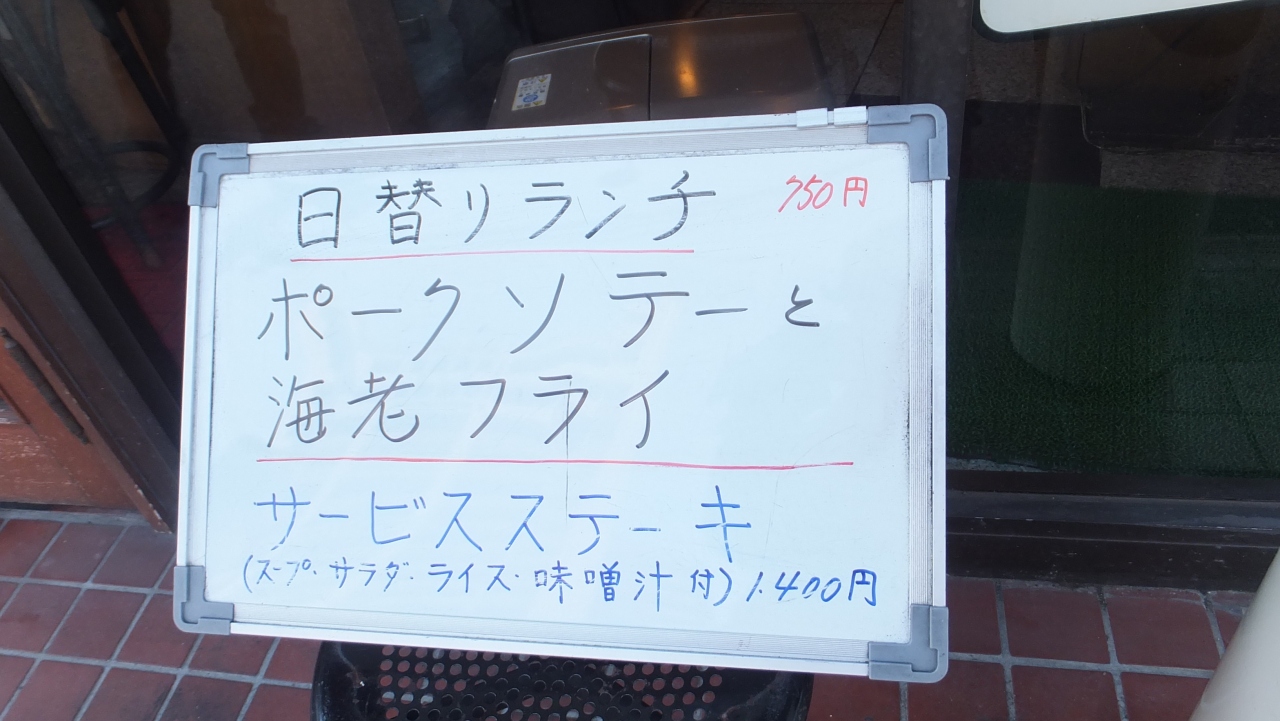 日替リランチ 750円
ポークソテーと
海老フライ
サービスステーキ
(スープ・サラダ・ライス・味噌汁付) 1.400円